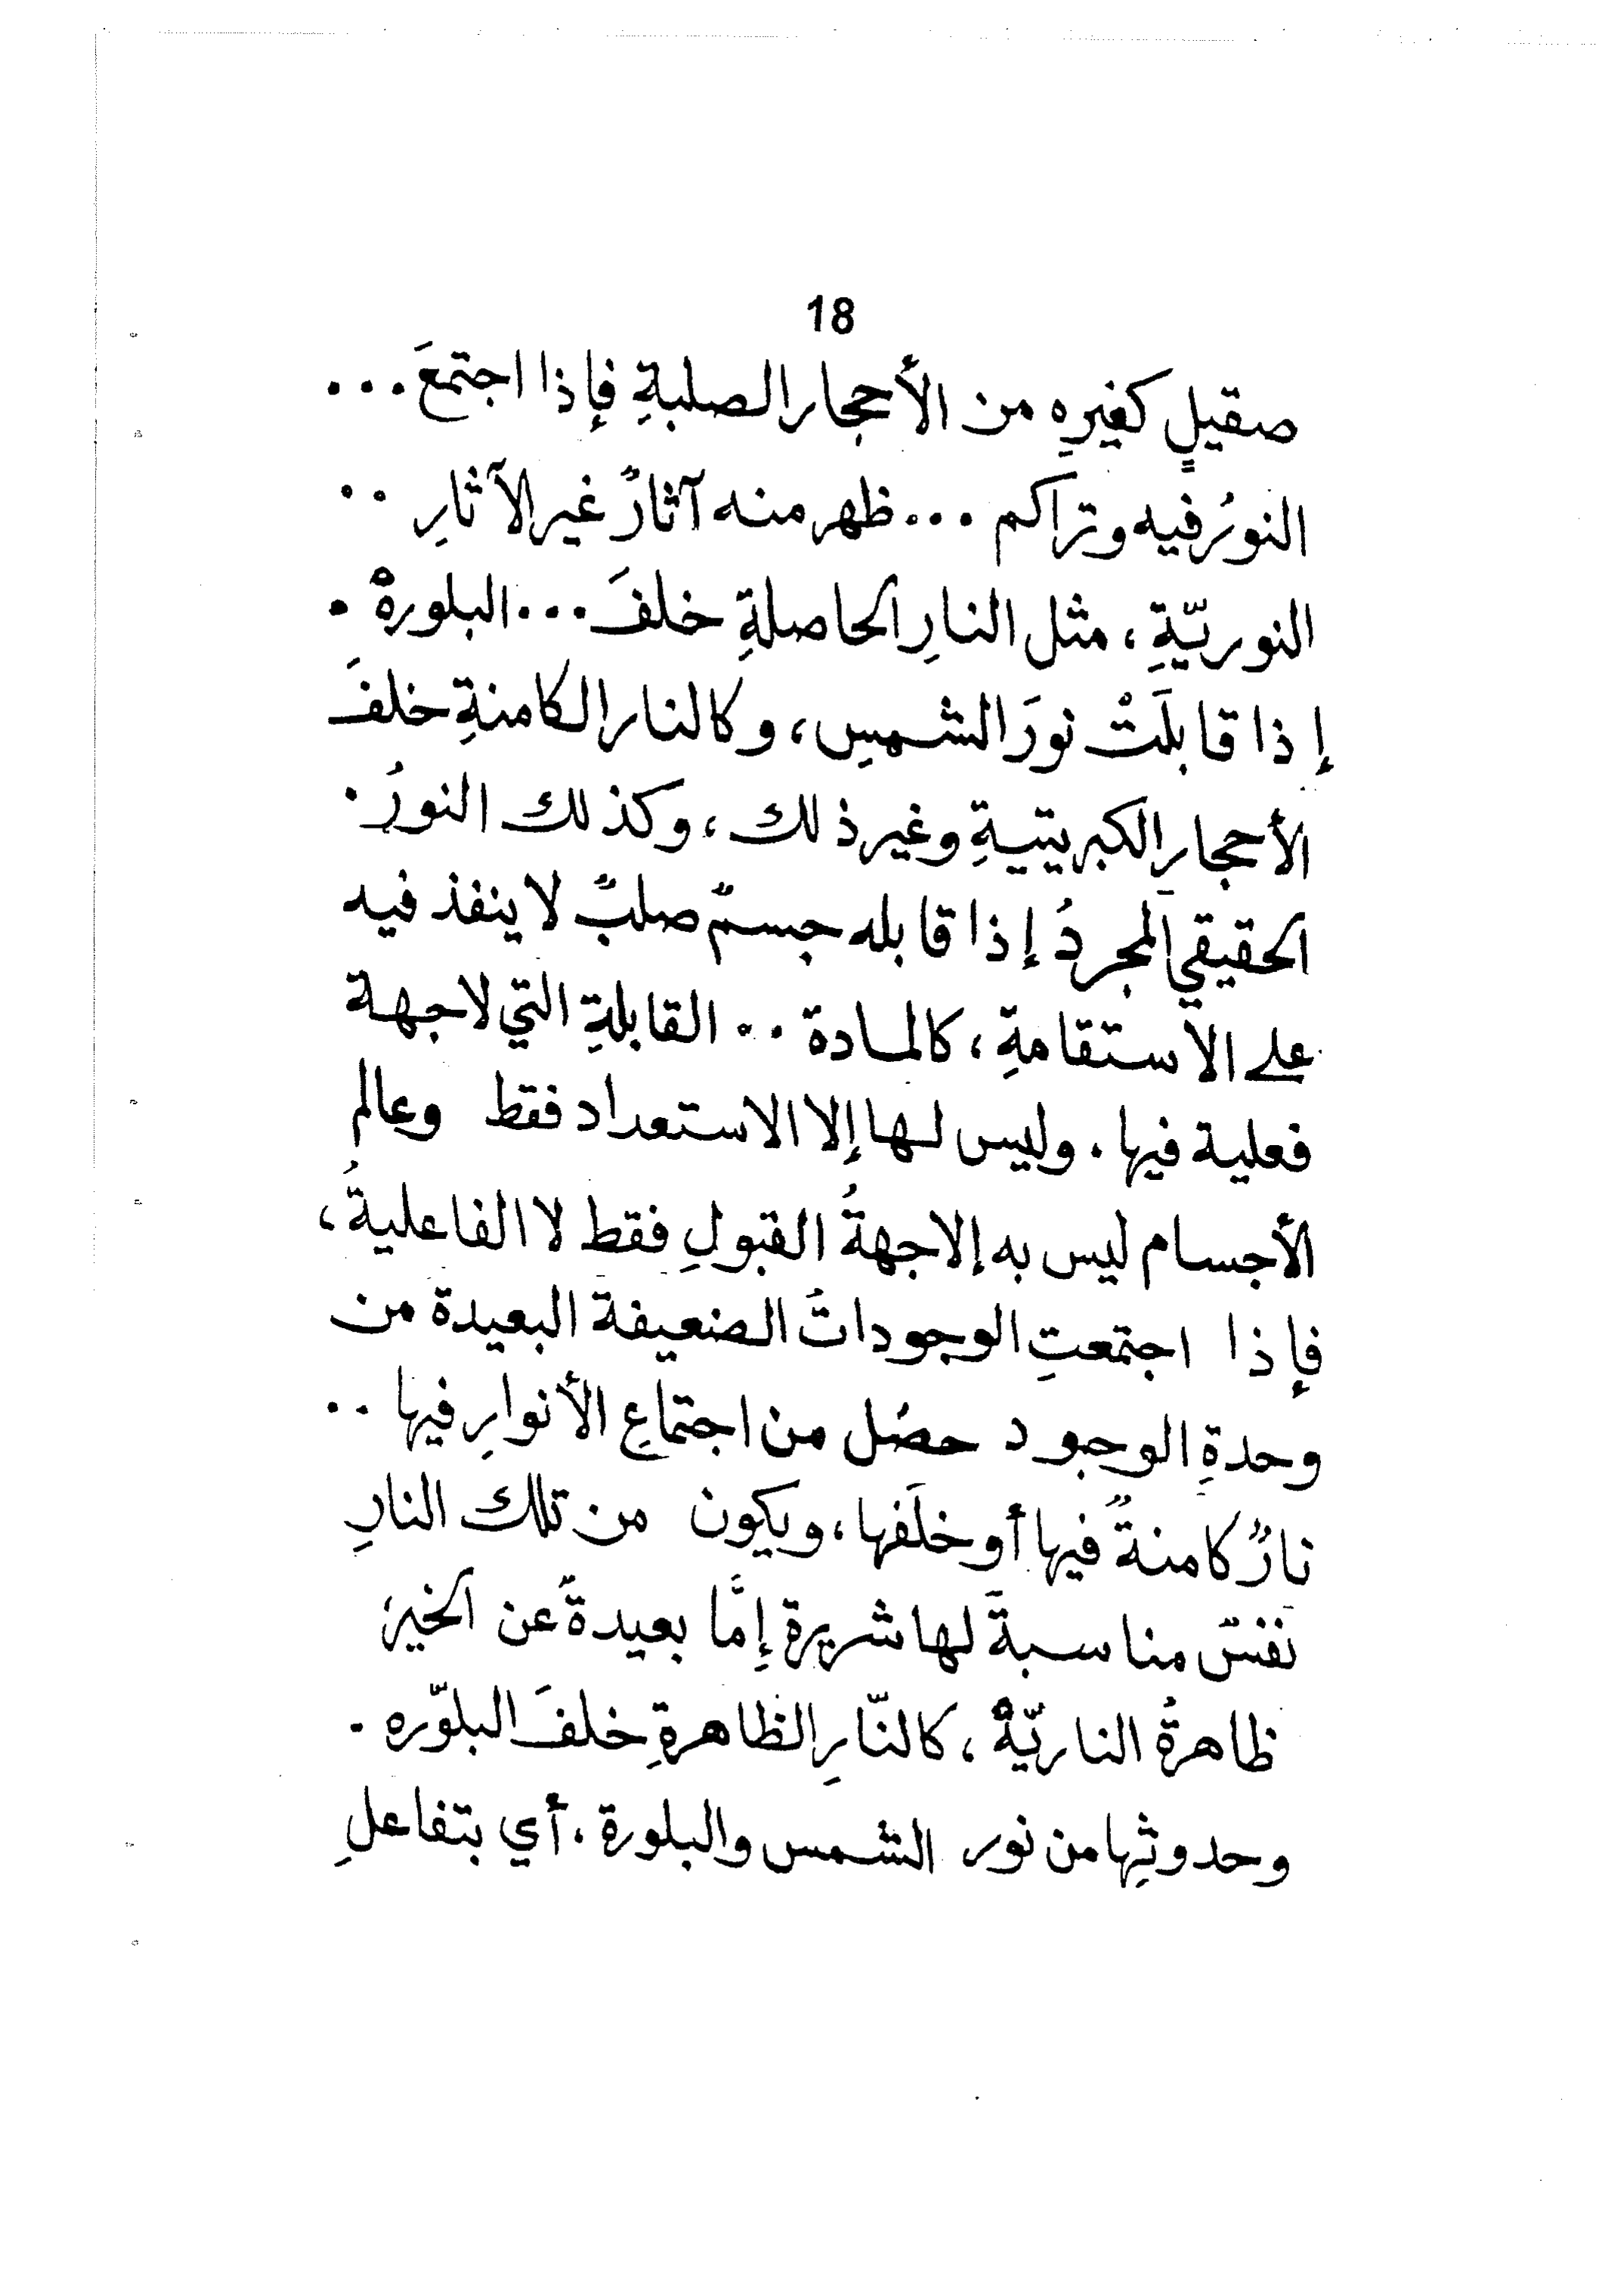 18
صقيلٍ كغيرِه من الأحجار الصلبةِ فإذا اجتمعَ...
النورُ فيه وتراكم ... ظهر منه آثارٌ غير الآثارِ ..
النوريّةِ، مثل النارِ الحاصلةِ خلفَ... البلورةْ .
إذا قابلَتْ نورَ الشمسِ، وكالنار الكامنةِ خلفَ
الأحجارِ الكبريتيةِ وغير ذلك، وكذلك النورُ.
الحقيقي المجردُ إذا قابله جسمٌ صلبٌ لا ينفذ فيه
على الاستقامةِ، كالمادة .. القابلةِ التي لا جهة
فعلية فيها. وليس لها إلا الاستعداد فقط وعالم
الأجسام ليس به إلا جهةُ القبولِ فقط لا الفاعليةُ،
فإذا اجتمعتِ الوجوداتُ الضعيفة البعيدة من
وحدةِ الوجود حصُل من اجتماعِ الأنوارِ فيها ..
نارٌ كامنةٌ فيها أو خلَفها، ويكون من تلك النارِ
نفسٌ مناسبةَ لها شريرة إمَّا بعيدةً عن الخيرِ
ظاهرةُ الناريّةْ، كالنّارِ الظاهرةِ خلفَ البلوّره .
وحدوثِها من نور الشمس والبلورة، أي بتفاعلِ